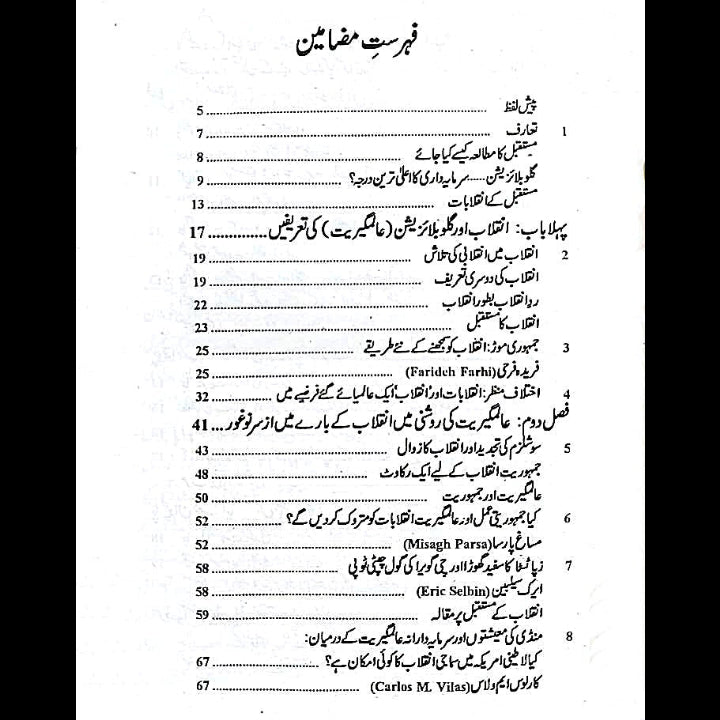 فہرستِ مضامین
پیش لفظ ........ 5
1 تعارف ........ 7
مستقبل کا مطالعہ کیسے کیا جائے ........ 8
گلوبلائزیشن ...... سرمایہ داری کا اعلیٰ ترین درجہ؟ ........ 9
مستقبل کے انقلابات ........ 13
پہلا باب: انقلاب اور گلوبلائزیشن (عالمگیریت) کی تعریفیں ........ 17
2 انقلاب میں انقلابی کی تلاش ........ 19
انقلاب کی دوسری تعریف ........ 19
ردِ انقلاب بطور انقلاب ........ 22
انقلاب کا مستقبل ........ 23
3 جمہوری موڑ: انقلاب کو سمجھنے کے نئے طریقے ........ 25
فریدہ فرحی (Farideh Farhi) ........ 25
4 اختلاف منظر: انقلابات اور 'انقلاب' ایک عالمیائے گئے فرضیے میں ........ 32
فصل دوم: عالمگیریت کی روشنی میں انقلاب کے بارے میں از سرِ نو غور ... 41
5 سوشلزم کی تجدید اور انقلاب کا زوال ........ 43
جمہوریت انقلاب کے لیے ایک رکاوٹ ........ 48
عالمگیریت اور جمہوریت ........ 50
6 کیا جمہوریتی عمل اور عالمگیریت انقلابات کو متروک کر دیں گے؟ ........ 52
مساغ پارسا (Misagh Parsa) ........ 52
7 زپاٹسٹا کا سفید گھوڑا اور چی گویرا کی گول چپٹی ٹوپی ........ 58
ایرک سیلبین (Eric Selbin) ........ 58
انقلاب کے مستقبل پر مقالہ ........ 59
8 منڈی کی معیشتوں اور سرمایہ دارانہ عالمگیریت کے درمیان:
کیا لاطینی امریکہ میں سماجی انقلاب کا کوئی امکان ہے؟ ........ 67
کارلوس ایم ولاس (Carlos M. Vilas) ........ 67